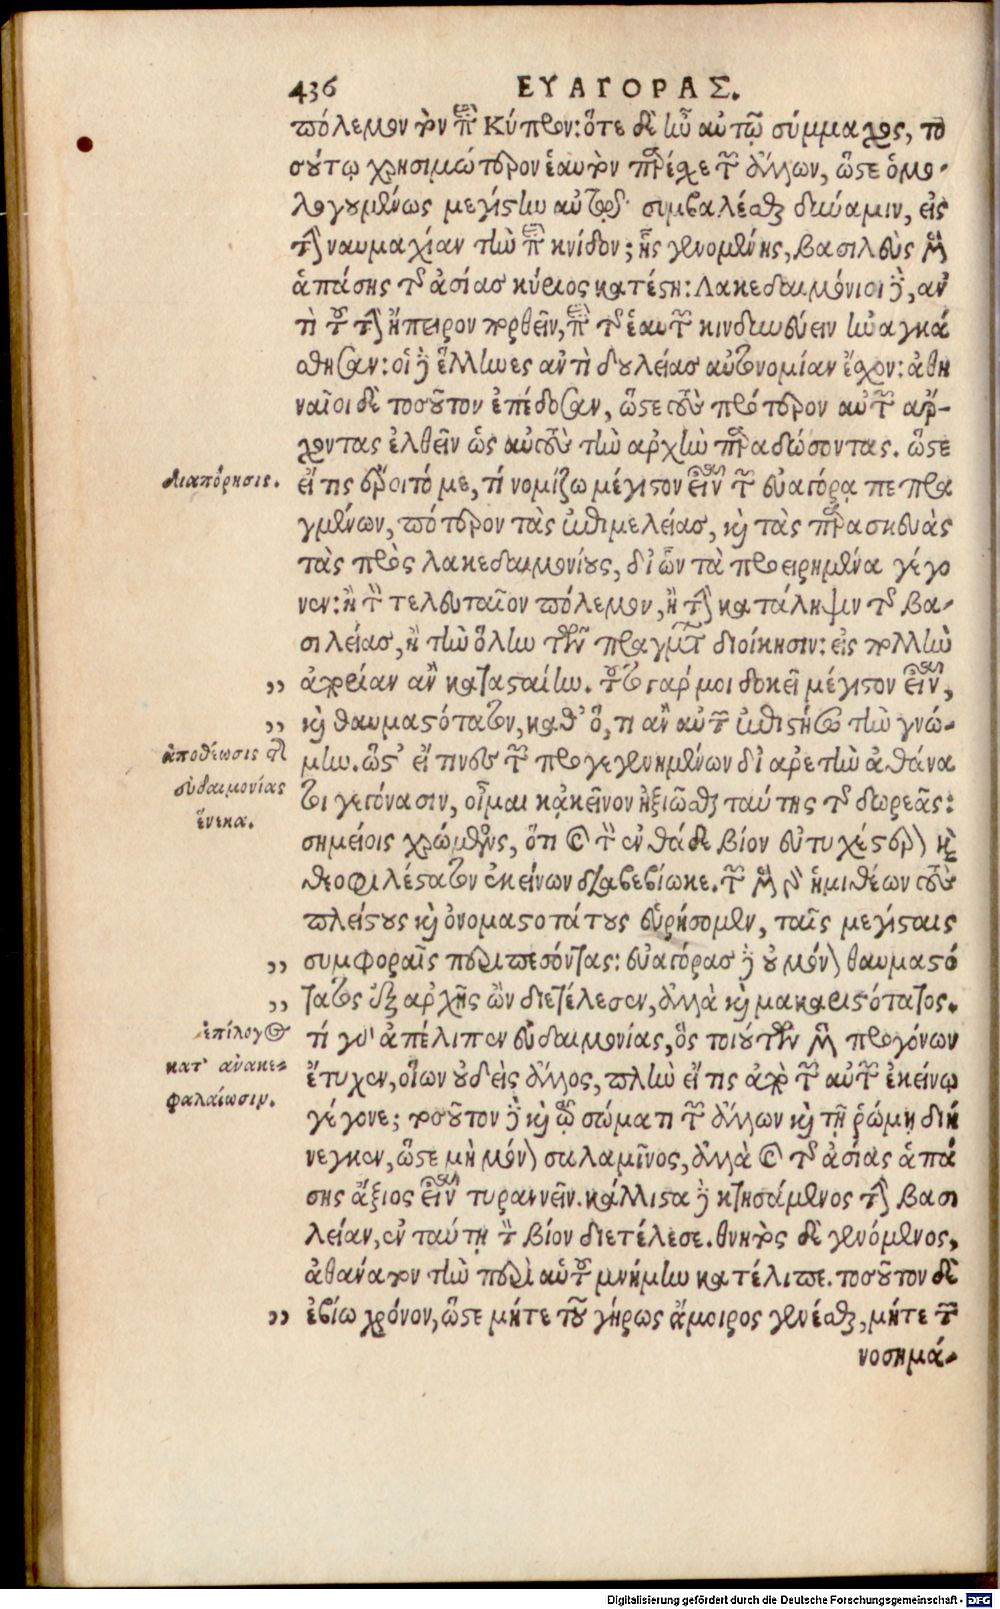 436 ΕΥΑΓΟΡΑΣ.
πόλεμον τὸν ἐπὶ Κύπρον: ὅτε δὲ ἦν αὐτῷ σύμμαχος, το
σούτῳ χρησιμώτερον ἑαυτὸν παρέχε τῶν ἄλλων, ὥστε ὁμο-
λογουμένως μεγίστην αὐτοῖς συμβαλέσθαι δύναμιν, εἰς
τὴν ναυμαχίαν τὴν ἐπὶ κνίδον; ἧς γενομένης, βασιλεὺς μὲν
ἁπάσης τῆς ἀσίας κύριος κατέστη: Λακεδαιμόνιοι δὲ, ἀν
τὶ τοῦ τὴν ἤπειρον πορθεῖν, ἐπὶ τῆς ἑαυτῶν κινδυνεύειν ἠναγκά
σθησαν: οἱ δὲ ἕλληνες ἀντὶ δουλείας αὐτονομίαν ἔσχον: ἀθη
ναῖοι δὲ τοσοῦτον ἐπέδοσαν, ὥστε τοὺς πρότερον αὐτῶν ἄρ-
χοντας ἐλθεῖν ὡς αὐτοὺς τὴν ἀρχὴν παραδώσοντας. ὥστε
διαπόρησις. εἴ τις ἔροιτό με, τί νομίζω μέγιστον εἶναι τῶν εὐαγόρᾳ πεπρα
γμένων, πότερον τὰς ἐπιμελείας, καὶ τὰς παρασκευὰς
τὰς πρὸς λακεδαιμονίους, δι' ὧν τὰ προειρημένα γέγο
νεν: ἢ τὸν τελευταῖον πόλεμον, ἢ τὴν κατάληψιν τῆς βα-
σιλείας, ἢ τὴν ὅλην τῶν πραγμάτων διοίκησιν: εἰς πολλὴν
,, ἀπορίαν ἂν κατασταίην. τοῦτο γάρ μοι δοκεῖ μέγιστον εἶναι,
,, καὶ θαυμαστότατον, καθ' ὅ, τι ἂν αὐτῶν ἐπιστήσω τὴν γνώ-
ἀποθέωσις μην. ὥστ' εἴ τινες τῶν προγεγενημένων δι' ἀρετὴν ἀθάνα
εὐδαιμονίας τοι γεγόνασιν, οἶμαι κἀκεῖνον ἠξιῶσθαι ταύτης τῆς δωρεᾶς:
ἕνεκα. σημείοις χρώμενος, ὅτι καὶ τὸν ἐνθάδε βίον εὐτυχέστερον καὶ
θεοφιλέστατον ἐκείνων διαβεβίωκε. τῶν μὲν γὰρ ἡμιθέων τοὺς
πλείστους καὶ ὀνομαστοτάτους εὑρήσομεν, ταῖς μεγίσταις
,, συμφοραῖς περιπεσόντας: εὐαγόρας δὲ οὐ μόνον θαυμαστό
,, τατος ἐξ ἀρχῆς ὢν διετέλεσεν, ἀλλὰ καὶ μακαριστότατος.
ἐπίλογος τί γὰρ ἀπέλιπεν εὐδαιμονίας, ὃς τοιούτων μὲν προγόνων
κατ' ἀνακε- ἔτυχεν, οἵων οὐδεὶς ἄλλος, πλὴν εἴ τις ἀπὸ τῶν αὐτῶν ἐκείνῳ
φαλαίωσιν. γέγονε; τοσοῦτον δὲ καὶ τῷ σώματι τῶν ἄλλων καὶ τῇ ῥώμῃ διή
νεγκεν, ὥστε μὴ μόνον σαλαμῖνος, ἀλλὰ καὶ τῆς ἀσίας ἁπά
σης ἄξιος εἶναι τυραννεῖν. κάλλιστα δὲ κτησάμενος τὴν βασι
λείαν, ἐν ταύτῃ τὸν βίον διετέλεσε. θνητὸς δὲ γενόμενος,
ἀθάνατον τὴν περὶ αὑτοῦ μνήμην κατέλιπε. τοσοῦτον δὲ
,, ἐβίω χρόνον, ὥστε μήτε τοῦ γήρως ἄμοιρος γενέσθαι, μήτε τῶν
νοσημά-
Digitalisierung gefördert durch die Deutsche Forschungsgemeinschaft - DFG